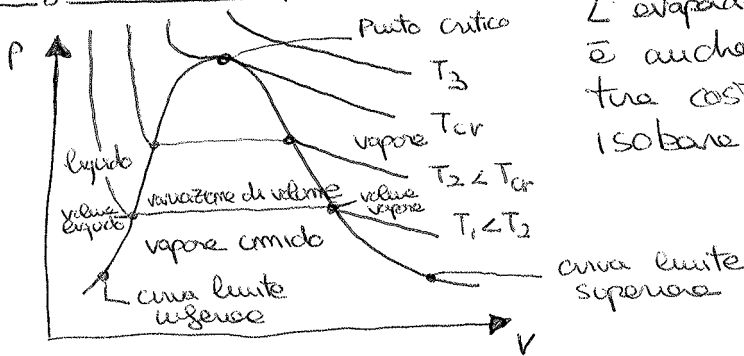 Punto critico
P
T3
Tcr
vapore
T2 < Tcr
liquido
variazione di volume
volume liquido
volume vapore
T1 < T2
vapore umido
curva limite inferiore
curva limite superiore
V
L'evapora
è anche
tura cost
isobare